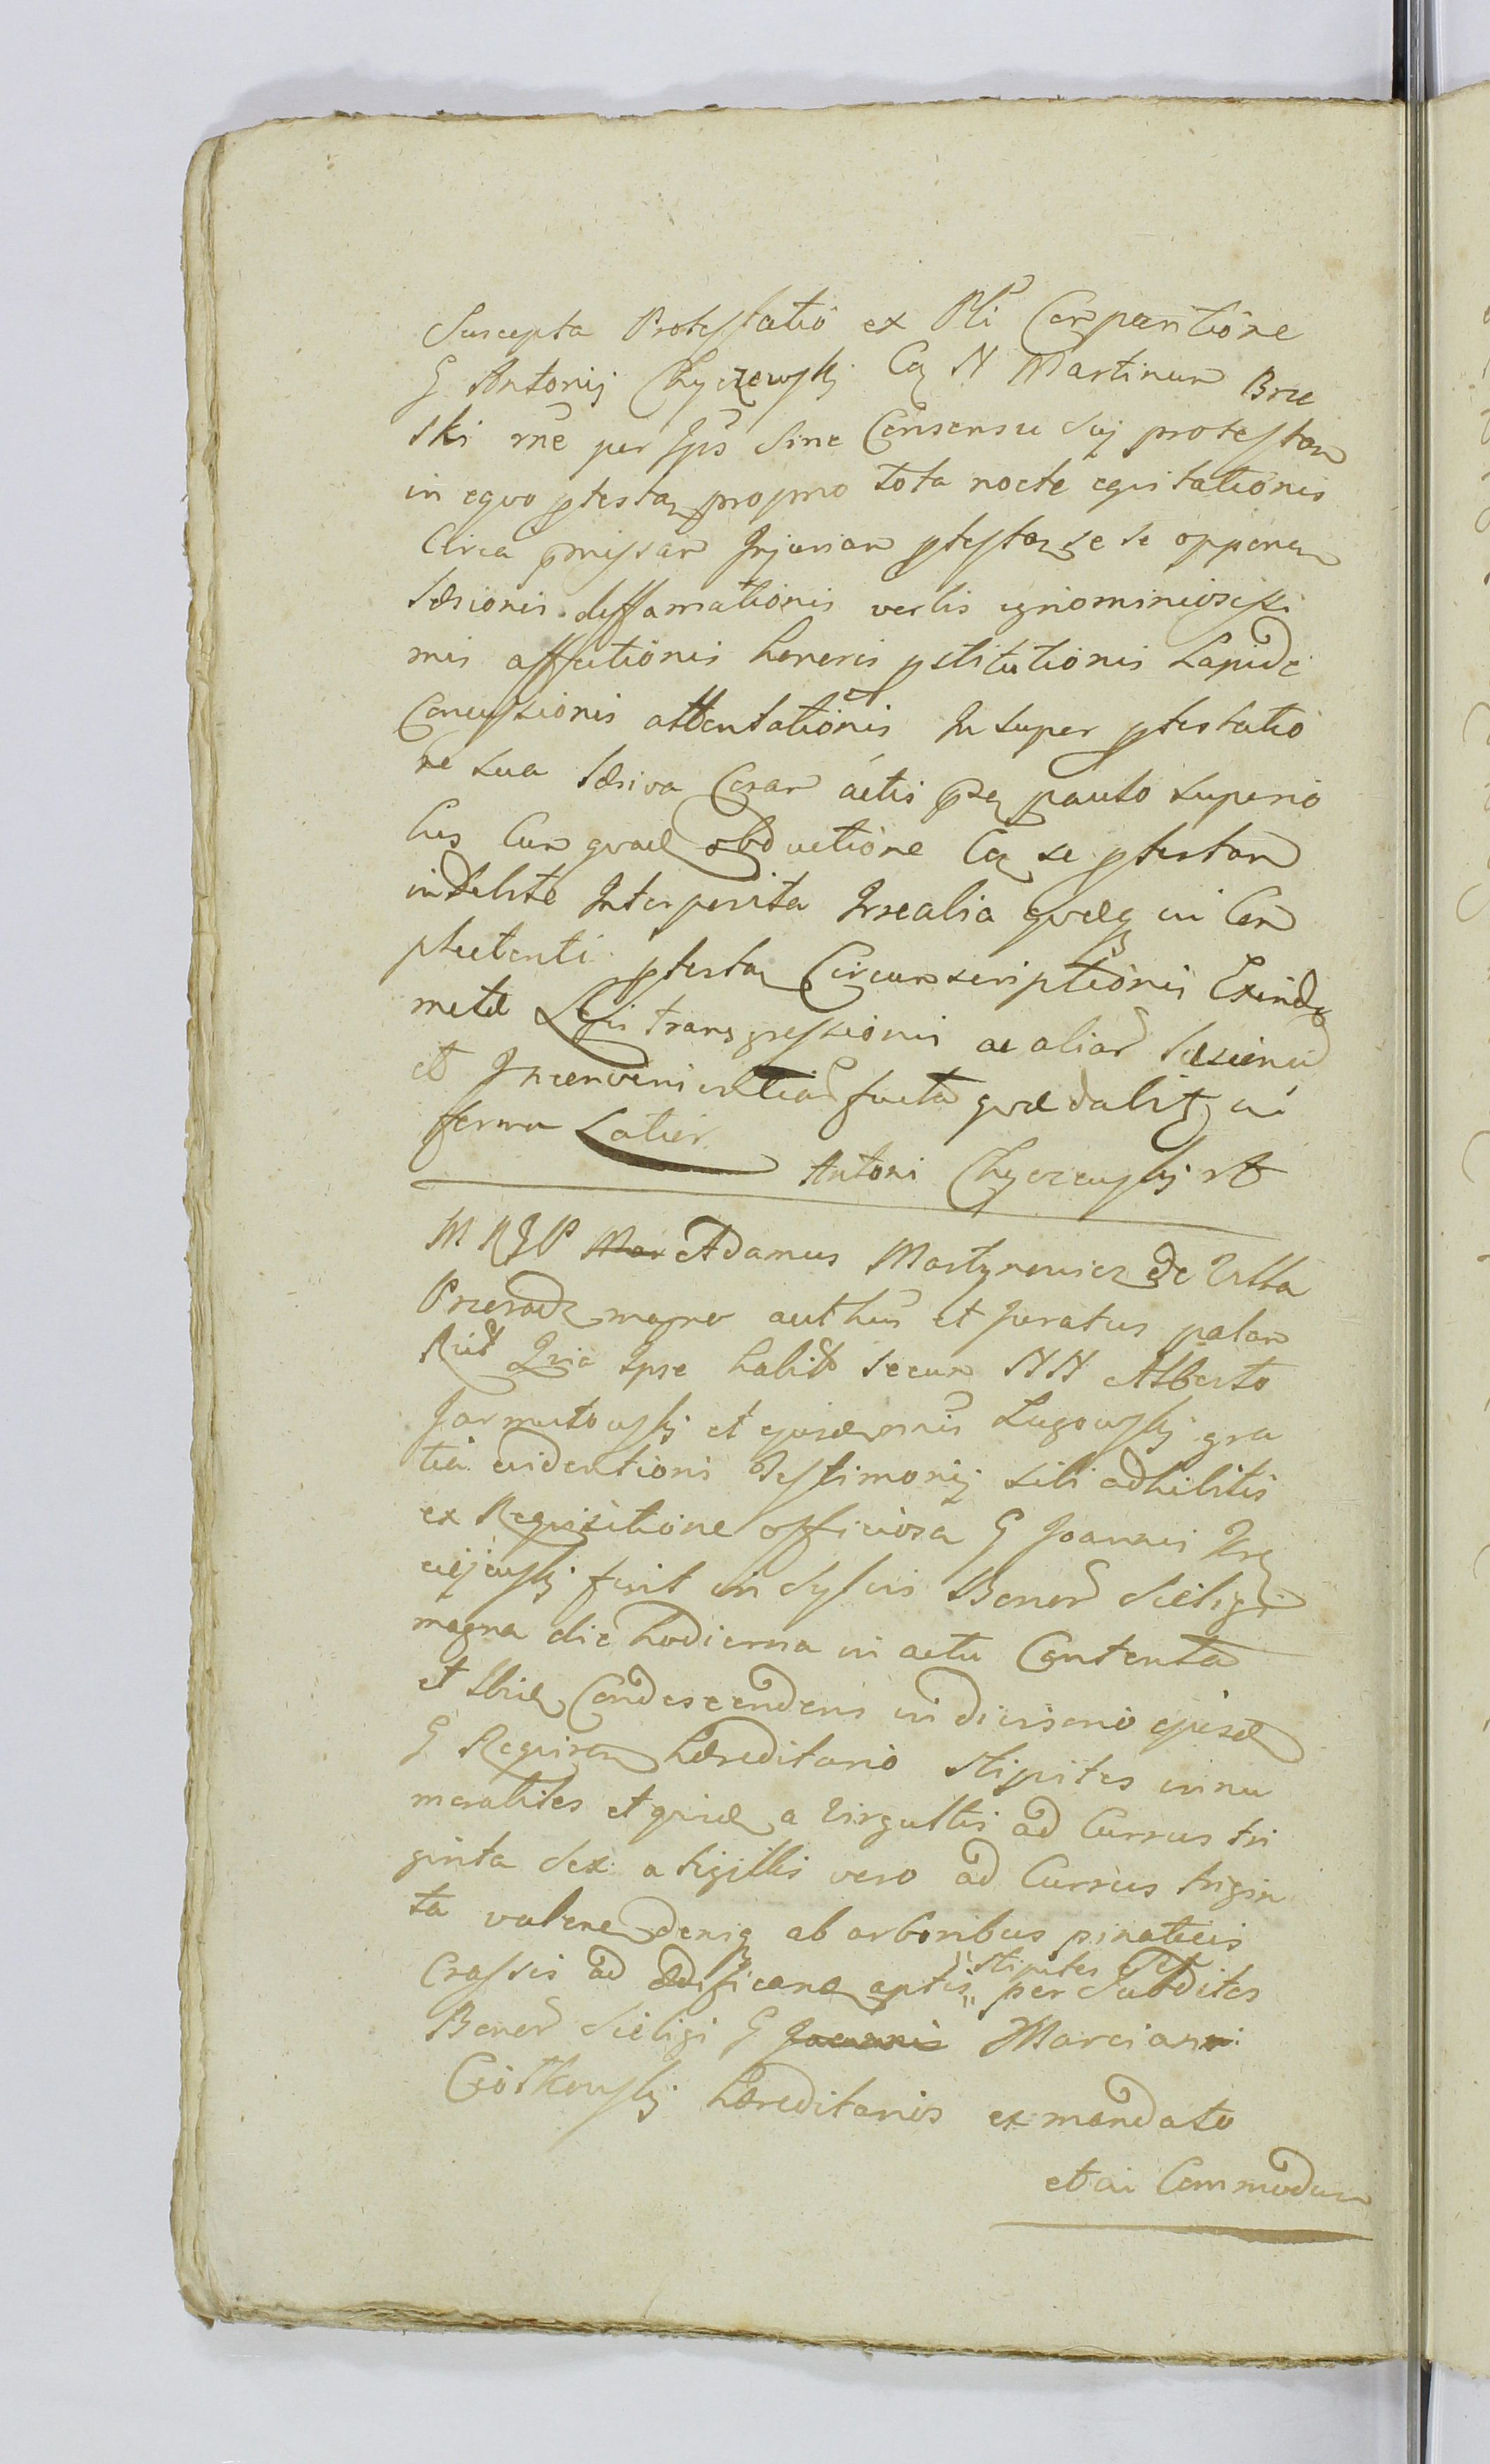 Suscepta Protestatio ex Pli Comparitione
G Antonij Chyczewskj Ca N Martinum Brze
ski rne per Ips sine Consensu suj protestan
in equo ptestan proprio tota nocte equitationis
Circa pmissam Injuriam ptestan se se opponen
læsionis diffamationis verbis ignominiosissi
mis affectionis honeris pstitutionis Lapide
Concussionis attentationis Insuper ptestatio
ne sua læsiva Coram actis pse paulo superio
bus cum quad obductione Ca se ptestan
indebite Interposita Irrealia quæq in Com
plectenti ptestan Circumscriptionis Exinde
metæ Legis transgressionis ac aliar læsionu
et Inconvenientiar facta quæ dabitz in
forma Latior
Antoni Chyczewskj A
M R G P Adamus Martynowicz de Villa
Przerad magno auth et juratus palam
Rtit Quia Ipse habit secum NN Alberto
Jarmutowskj et ejusd nis Lugowskj gra
tia evidentioris Testimonij sibi adhibitis
ex Requisitione officiosa G Joannis
fuit in Sylvis Bonor Sieligi
magna die hodierna in actu Contenta
et Ibid Condescendens in divisione ejusd
G Requiren hæreditario stipites innu
merabiles et quid a Virgultis ad Currus tri
ginta sex a tigillis vero ad Currus trigin
ta valene deniq ab arboribus pinaticis
Crassis ad ædificand aptis " stipites per Subditos
Bonor Sieligi G Joannis Marciani
Ciotkowskj hæreditarios ex mandato
et ai Commodum